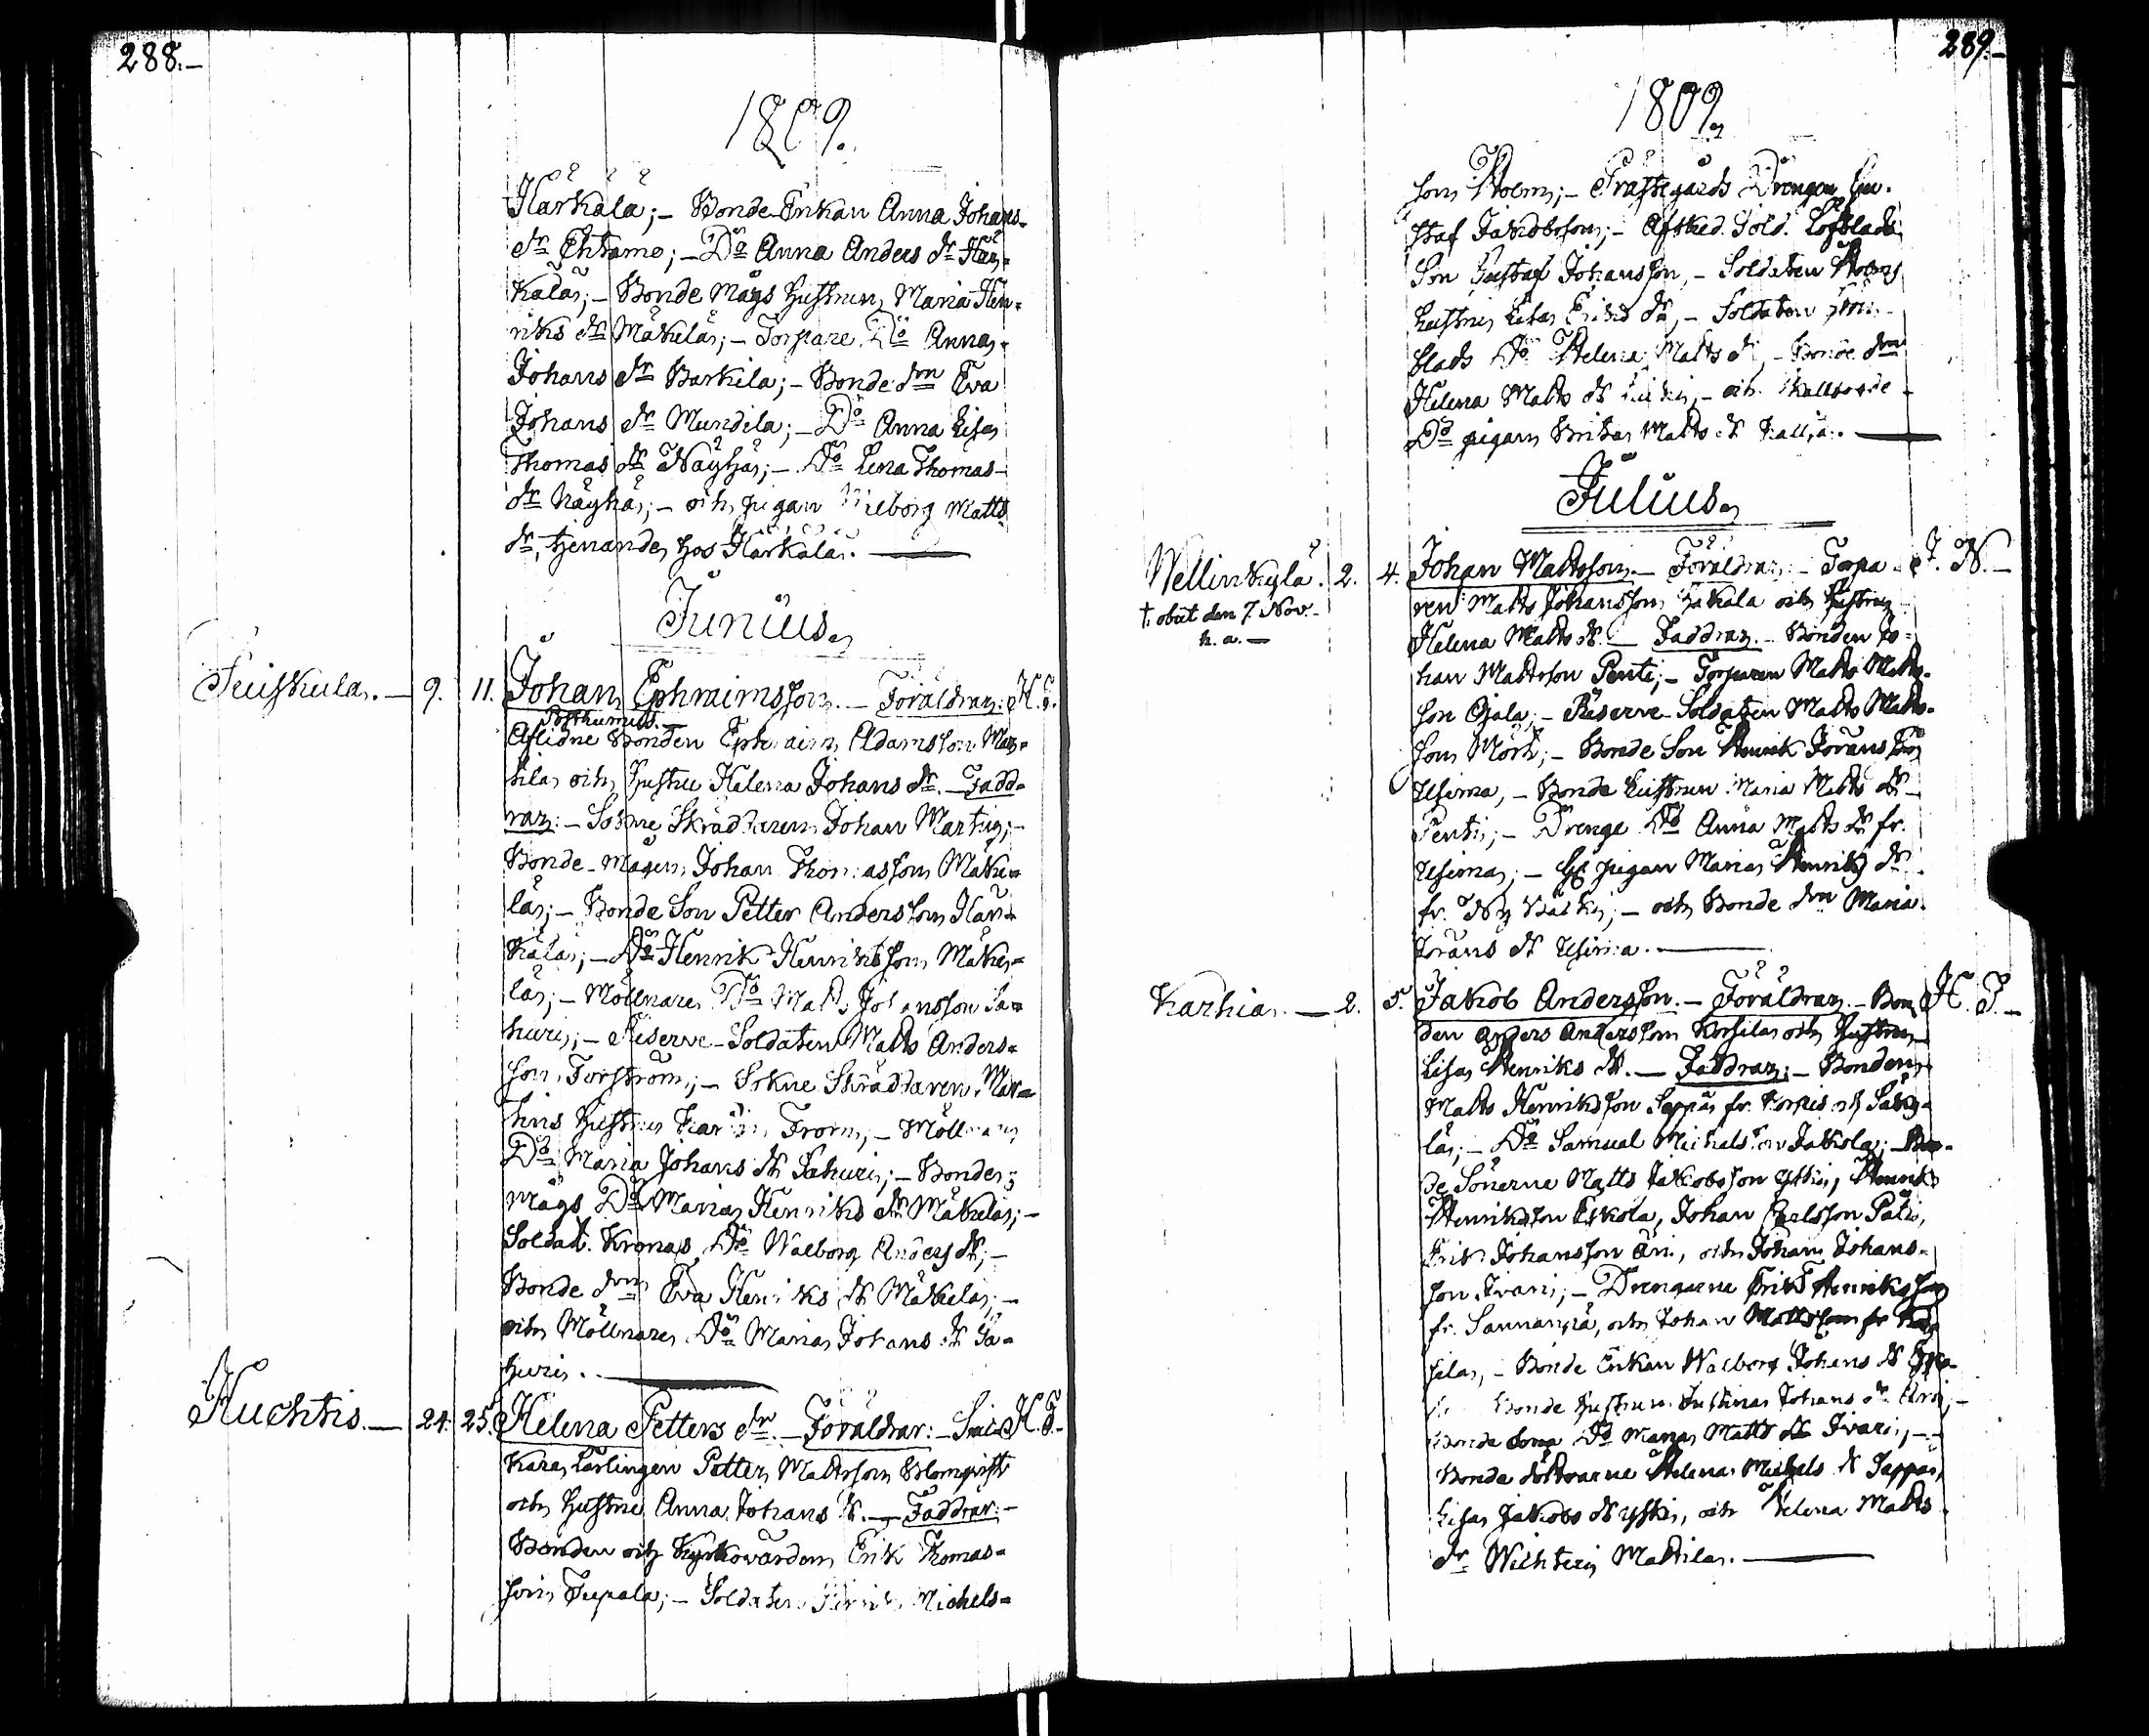 288.
1809.
Härkälä; – Bonde Enkan Anna Johans-
dr Ehtamo; – Do Anna Anders dr Här-
kälä; – Bonde Mågs Hustrun Maria Hen-
riks dr Mäkelä; – Torpare Do Anna
Johans dr Barkila; – Bonde drn Eva
Johans dr Mundila; – Do Anna Lisa
Thomas dr Näyhä; – Do Lena Thomas-
dr Näyhä; – och pigan Walborg Matts
dr, tjenande hos Härkälä. —
Junius
Suiskula. — 9. 11. Johan Ephraimsson. — Föräldrar: H. T.
Posthumus. —
Aflidne Bonden Ephraim Adamsson Mar-
tila och Hustru Helena Johans dr. — Fadd-
rar: — Sokne Skräddaren Johan Martin; –
Bonde-Mågen Johan Thomasson Mäke-
lä; – Bonde Son Petter Andersson Här-
kälä; – Do Henrik Henriksson Mäke-
lä; – Möllnare Do Matts Johansson Sa-
huri; – Reserve-Soldaten Matts Anders-
son Forström; – Sokne Skräddaren Mar-
tins Hustru Karin From; – Möllnare
Do Maria Johans dr Sahuri; – Bonde
Mågs Do Maria Henriks dr Mäkelä; –
Soldat. Kronas Do Walborg Anders dr; –
Bonde drn Eva Henriks dr Mäkelä; –
och Möllnare Do Maria Johans dr Sa-
huri. —
Huchtis. — 24. 25. Helena Petters dr. — Föräldrar: — H. T.
Kare Lärlingen Petter Mattsson Blomqvist
och Hustru Anna Johans dr. — Faddrar: —
Bonden och Kyrkovärden Erik Thomas-
son Tupala; – Soldaten Henrik Michels-
289.
1809.
son Holm; – Prästegårds Drengen Gu-
staf Jakobsson; – Afsked. Sold. Löfblads
Son Gustaf Johansson, – Soldaten Holms
Hustru Lisa Eriks dr, – Soldaten
blads Do Helena Matts dr – Bonde drn
Helena Matts dr – och
Do pigan Brita Matts dr —
Julius
Wellinkylä. 2. 4. Johan Mattsson. — Föräldrar: — Torpa- J. N. —
† obiit den 7. Nov.
h. a. —
ren Matts Johansson Hakala och Hustru
Helena Matts dr. — Faddrar. — Bonden Jo-
han Mattsson Penti; – Torparen Matts Matts-
son Ojala; – Reserve-Soldaten Matts Matts-
son Mörk; – Bonde Son Henrik Jöransson
Uhima, – Bonde Hustrun Maria Matts dr –
Penti; – Drenge Do Anna Matts dr fr.
Uhima; – pigan Maria Henriks dr
fr. – och Bonde drn Maria
Jörans dr Uhima. —
Karhia. — 2. 5. Jakob Andersson. — Föräldrar. — Bon- H. T. —
den Anders Andersson Korsila och Hustrun
Lisa Henriks dr. — Faddrar; — Bonden
Matts Henriksson Seppä fr. Korpis och Säky-
lä; – Do Samuel Michelsson Jakkola; – Bon-
de Sönerne Matts Jakobsson Yski, Henrik
Henriksson Eskola, Johan Carlsson Päti,
Erik Johansson Äri, och Johan Johans-
son Ivari; – Drengarne Erik Henriksson
fr. Sannanpä, och Johan Mattsson fr.
– Bonde Enkan Walborg Johans dr
Bonde Hustrun Justina Johans dr Äri; –
Bonde Sons Do Maria Matts dr Ivari; –
Bonde döttrarne Helena Michels dr Seppä,
Lisa Jakobs dr Yski, och Helena Matts
dr Wichteri Mattila. —